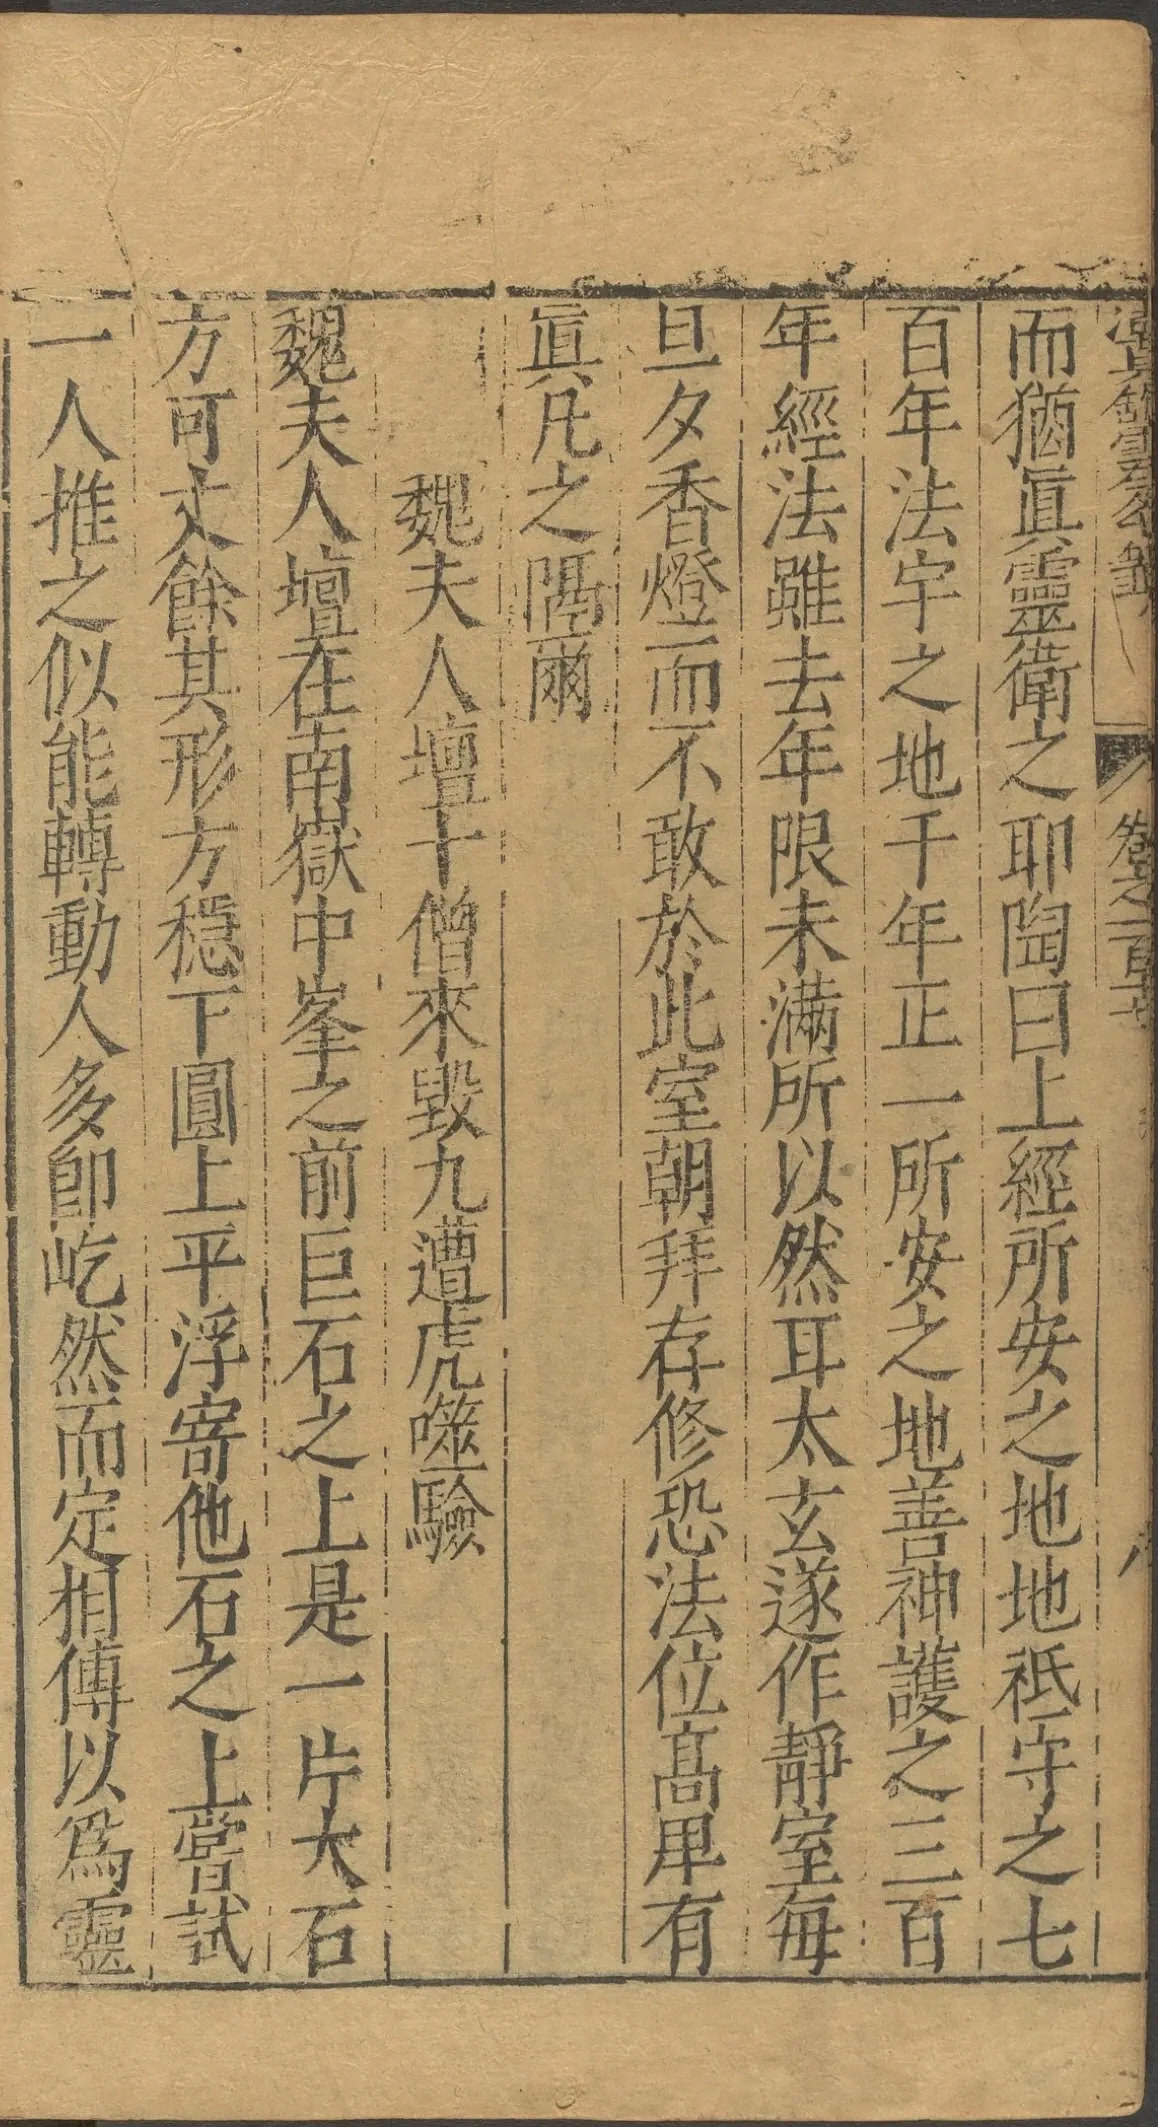 卷之一百
而猶眞靈衛之耶陶曰上經所安之地地祇守之七
百年法宇之地千年正一所安之地善神護之三百
年經法雖去年限未滿所以然耳太玄遂作靜室每
旦夕香燈而不敢於此室朝拜存修恐法位高卑有
眞凡之隔爾
魏夫人壇十僧來毀九遭虎噬驗
魏夫人壇在南嶽中峯之前巨石之上是一片大石
方可丈餘其形方穩下圓上平浮寄他石之上嘗試
一人推之似能轉動人多卽屹然而定相傳以爲靈